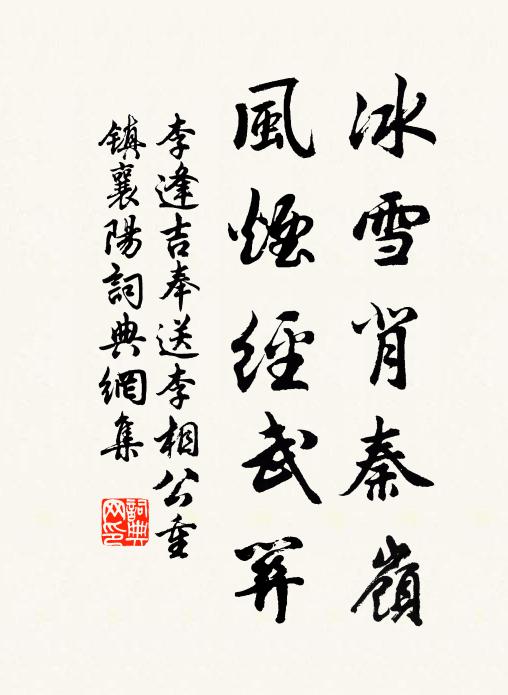 冰雪背秦嶺
風煙經武關
李逢吉奉送李相公重
鎮襄陽詞典網集
詞典
网印